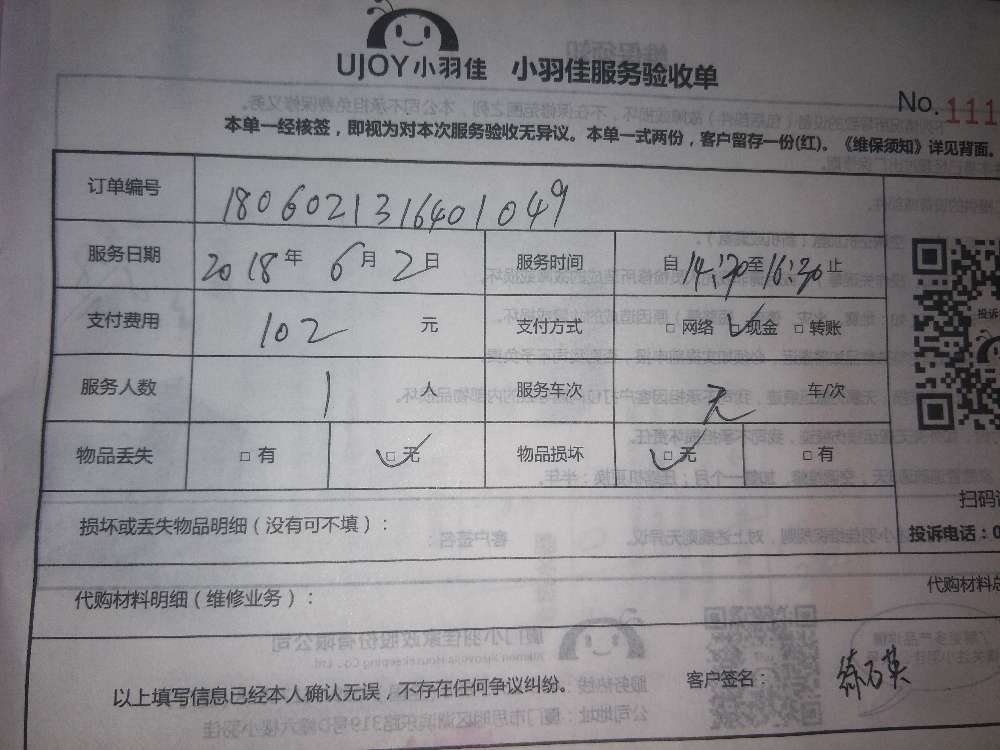 UJOY小羽佳 小羽佳服务验收单
No. 111
本单一经核签，即视为对本次服务验收无异议。本单一式两份，客户留存一份(红)。《维保须知》详见背面。
订单编号 180602131640104 9
服务日期 2018年6月2日 服务时间 自14:30至16:30止
支付费用 102 元 支付方式 □网络 □现金 □转账
投诉
服务人数 1 人 服务车次 无 车/次
物品丢失 □有 □无 物品损坏 □无 □有
扫码
损坏或丢失物品明细（没有可不填）：
投诉电话：0
代购材料明细（维修业务）：
代购材料总
以上填写信息已经本人确认无误，不存在任何争议纠纷。 客户签名：